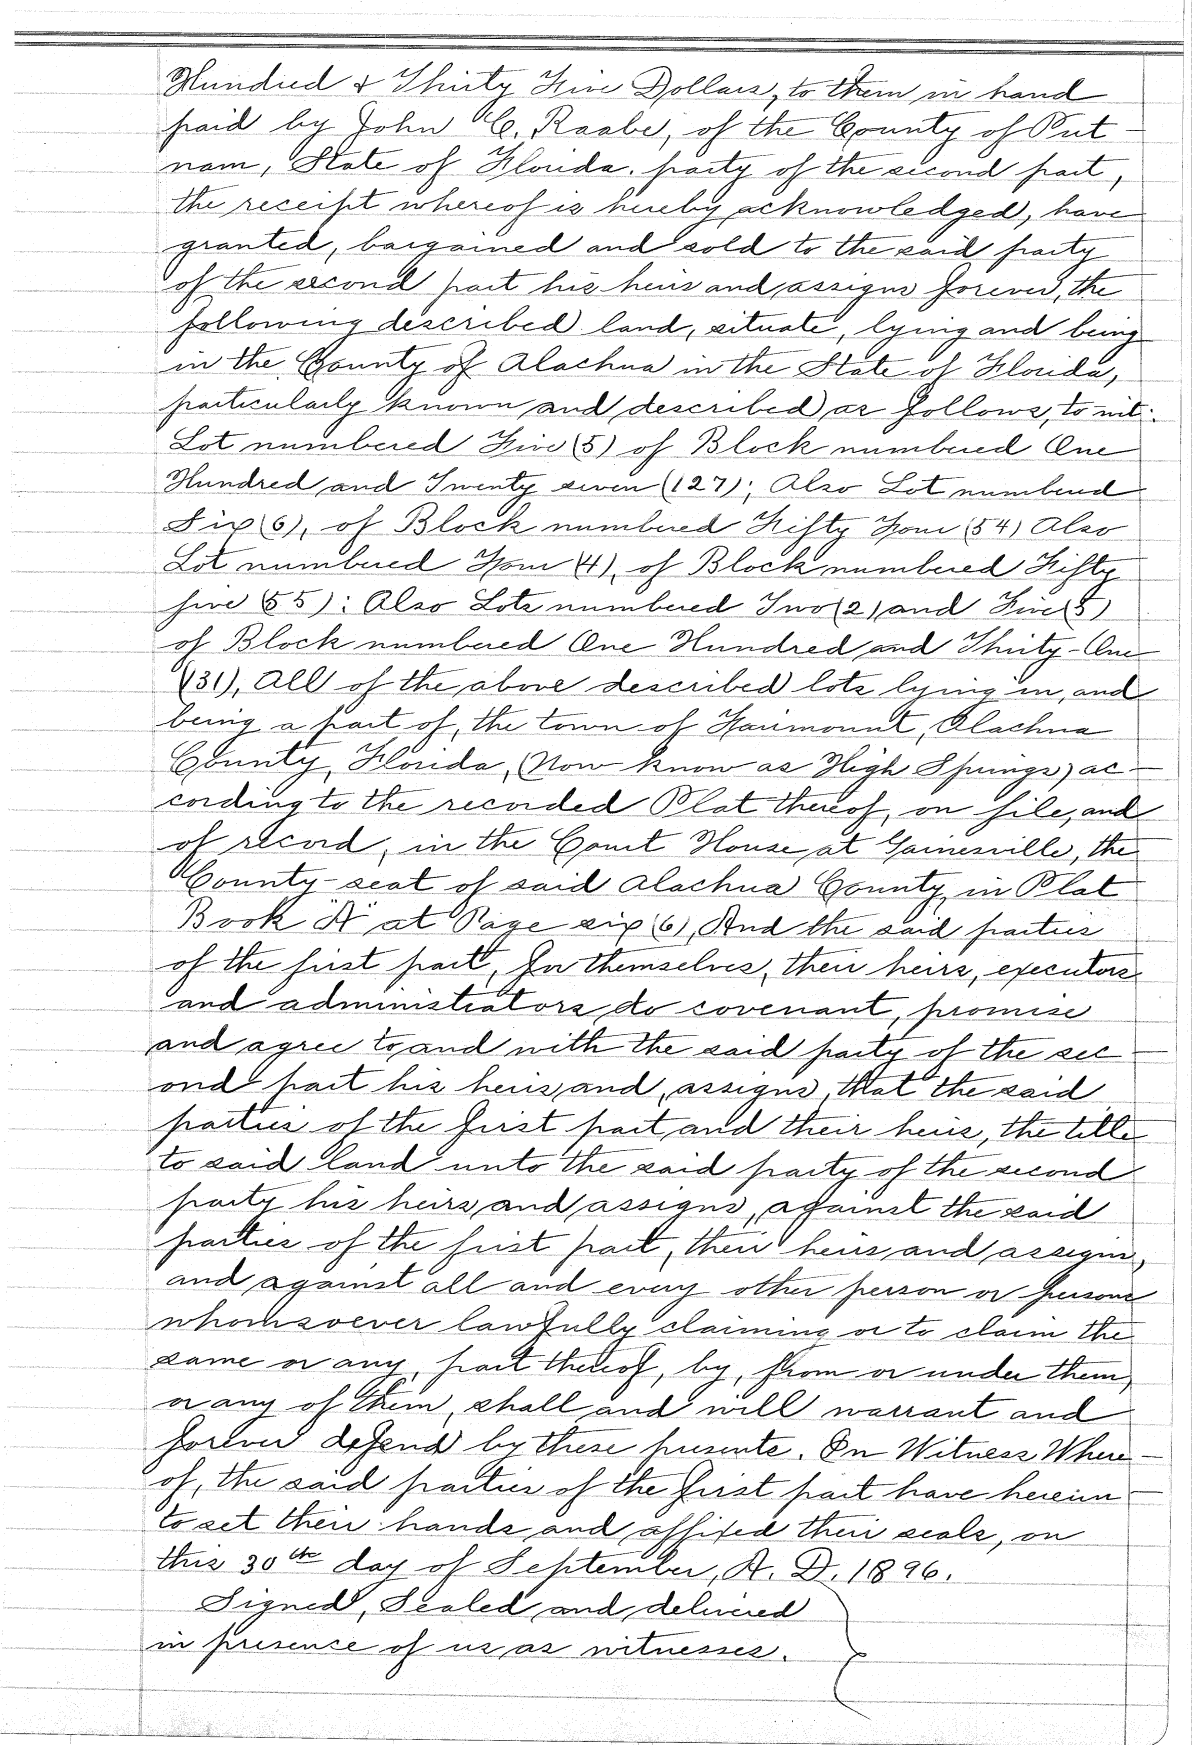 Hundred & Thirty Five Dollars, to them in hand
paid by John C. Raabe, of the County of Put-
nam, State of Florida. party of the second part,
the receipt whereof is hereby acknowledged, have
granted, bargained and sold to the said party
of the second part his heirs and assigns forever, the
following described land, situate, lying and being
in the County of Alachua in the State of Florida,
particularly known and described as follows, to wit:
Lot numbered Five (5) of Block numbered One
Hundred and Twenty seven (127); Also Lot numbered
Six (6), of Block numbered Fifty Four (54) Also
Lot numbered Four (4), of Block numbered Fifty
five (55): Also Lots numbered Two (2) and Five (5)
of Block numbered One Hundred and Thirty-One
(131), All of the above described lots lying in, and
being a part of, the town of Fairmount, Alachua
County, Florida, (Now know as High Springs) ac-
cording to the recorded Plat thereof, on file, and
of record, in the Court House at Gainesville, the
County-seat of said Alachua County, in Plat
Book "A" at Page six (6), And the said parties
of the first part, for themselves, their heirs, executors
and administrators, do covenant, promise
and agree to and with the said party of the sec-
ond part his heirs and assigns, that the said
parties of the first part and their heirs, the title
to said land unto the said party of the second
party his heirs and assigns, against the said
parties of the first part, their heirs and assigns,
and against all and every other person or persons
whomsoever lawfully claiming or to claim the
same or any part thereof, by, from or under them,
or any of them, shall and will warrant and
forever defend by these presents. In Witness Where-
of, the said parties of the first part have hereun-
to set their hands and affixed their seals, on
this 30th day of September, A. D. 1896.
Signed, Sealed and delivered
in presence of us as witnesses.